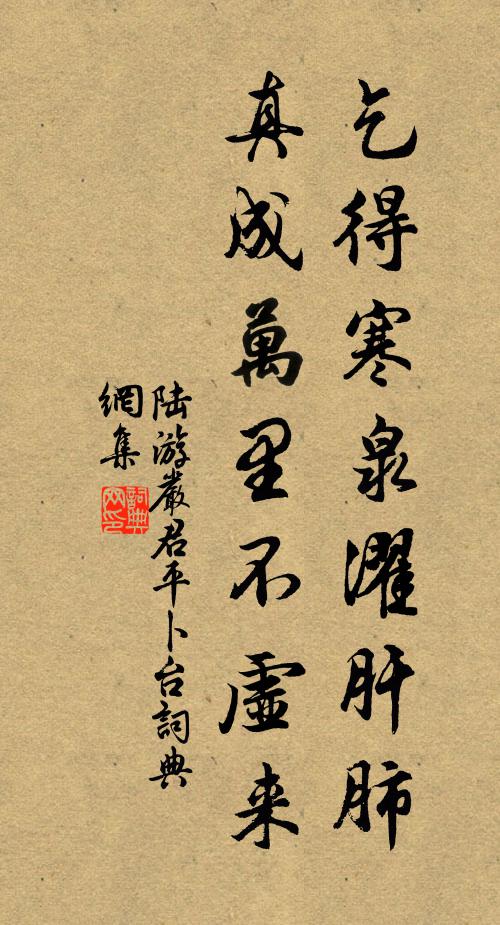 乞得寒泉濯肝肺
真成萬里不虛来
陆游嚴君平卜台詞典
網集
詞典
网印